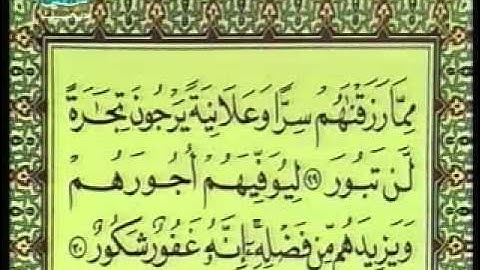 مِمَّا رَزَقْنَٰهُمْ سِرًّا وَعَلَانِيَةً يَرْجُونَ تِجَٰرَةً
لَّن تَبُورَ ٢٩ لِيُوَفِّيَهُمْ أُجُورَهُمْ
وَيَزِيدَهُم مِّن فَضْلِهِۦٓ إِنَّهُۥ غَفُورٌ شَكُورٌ ٣٠